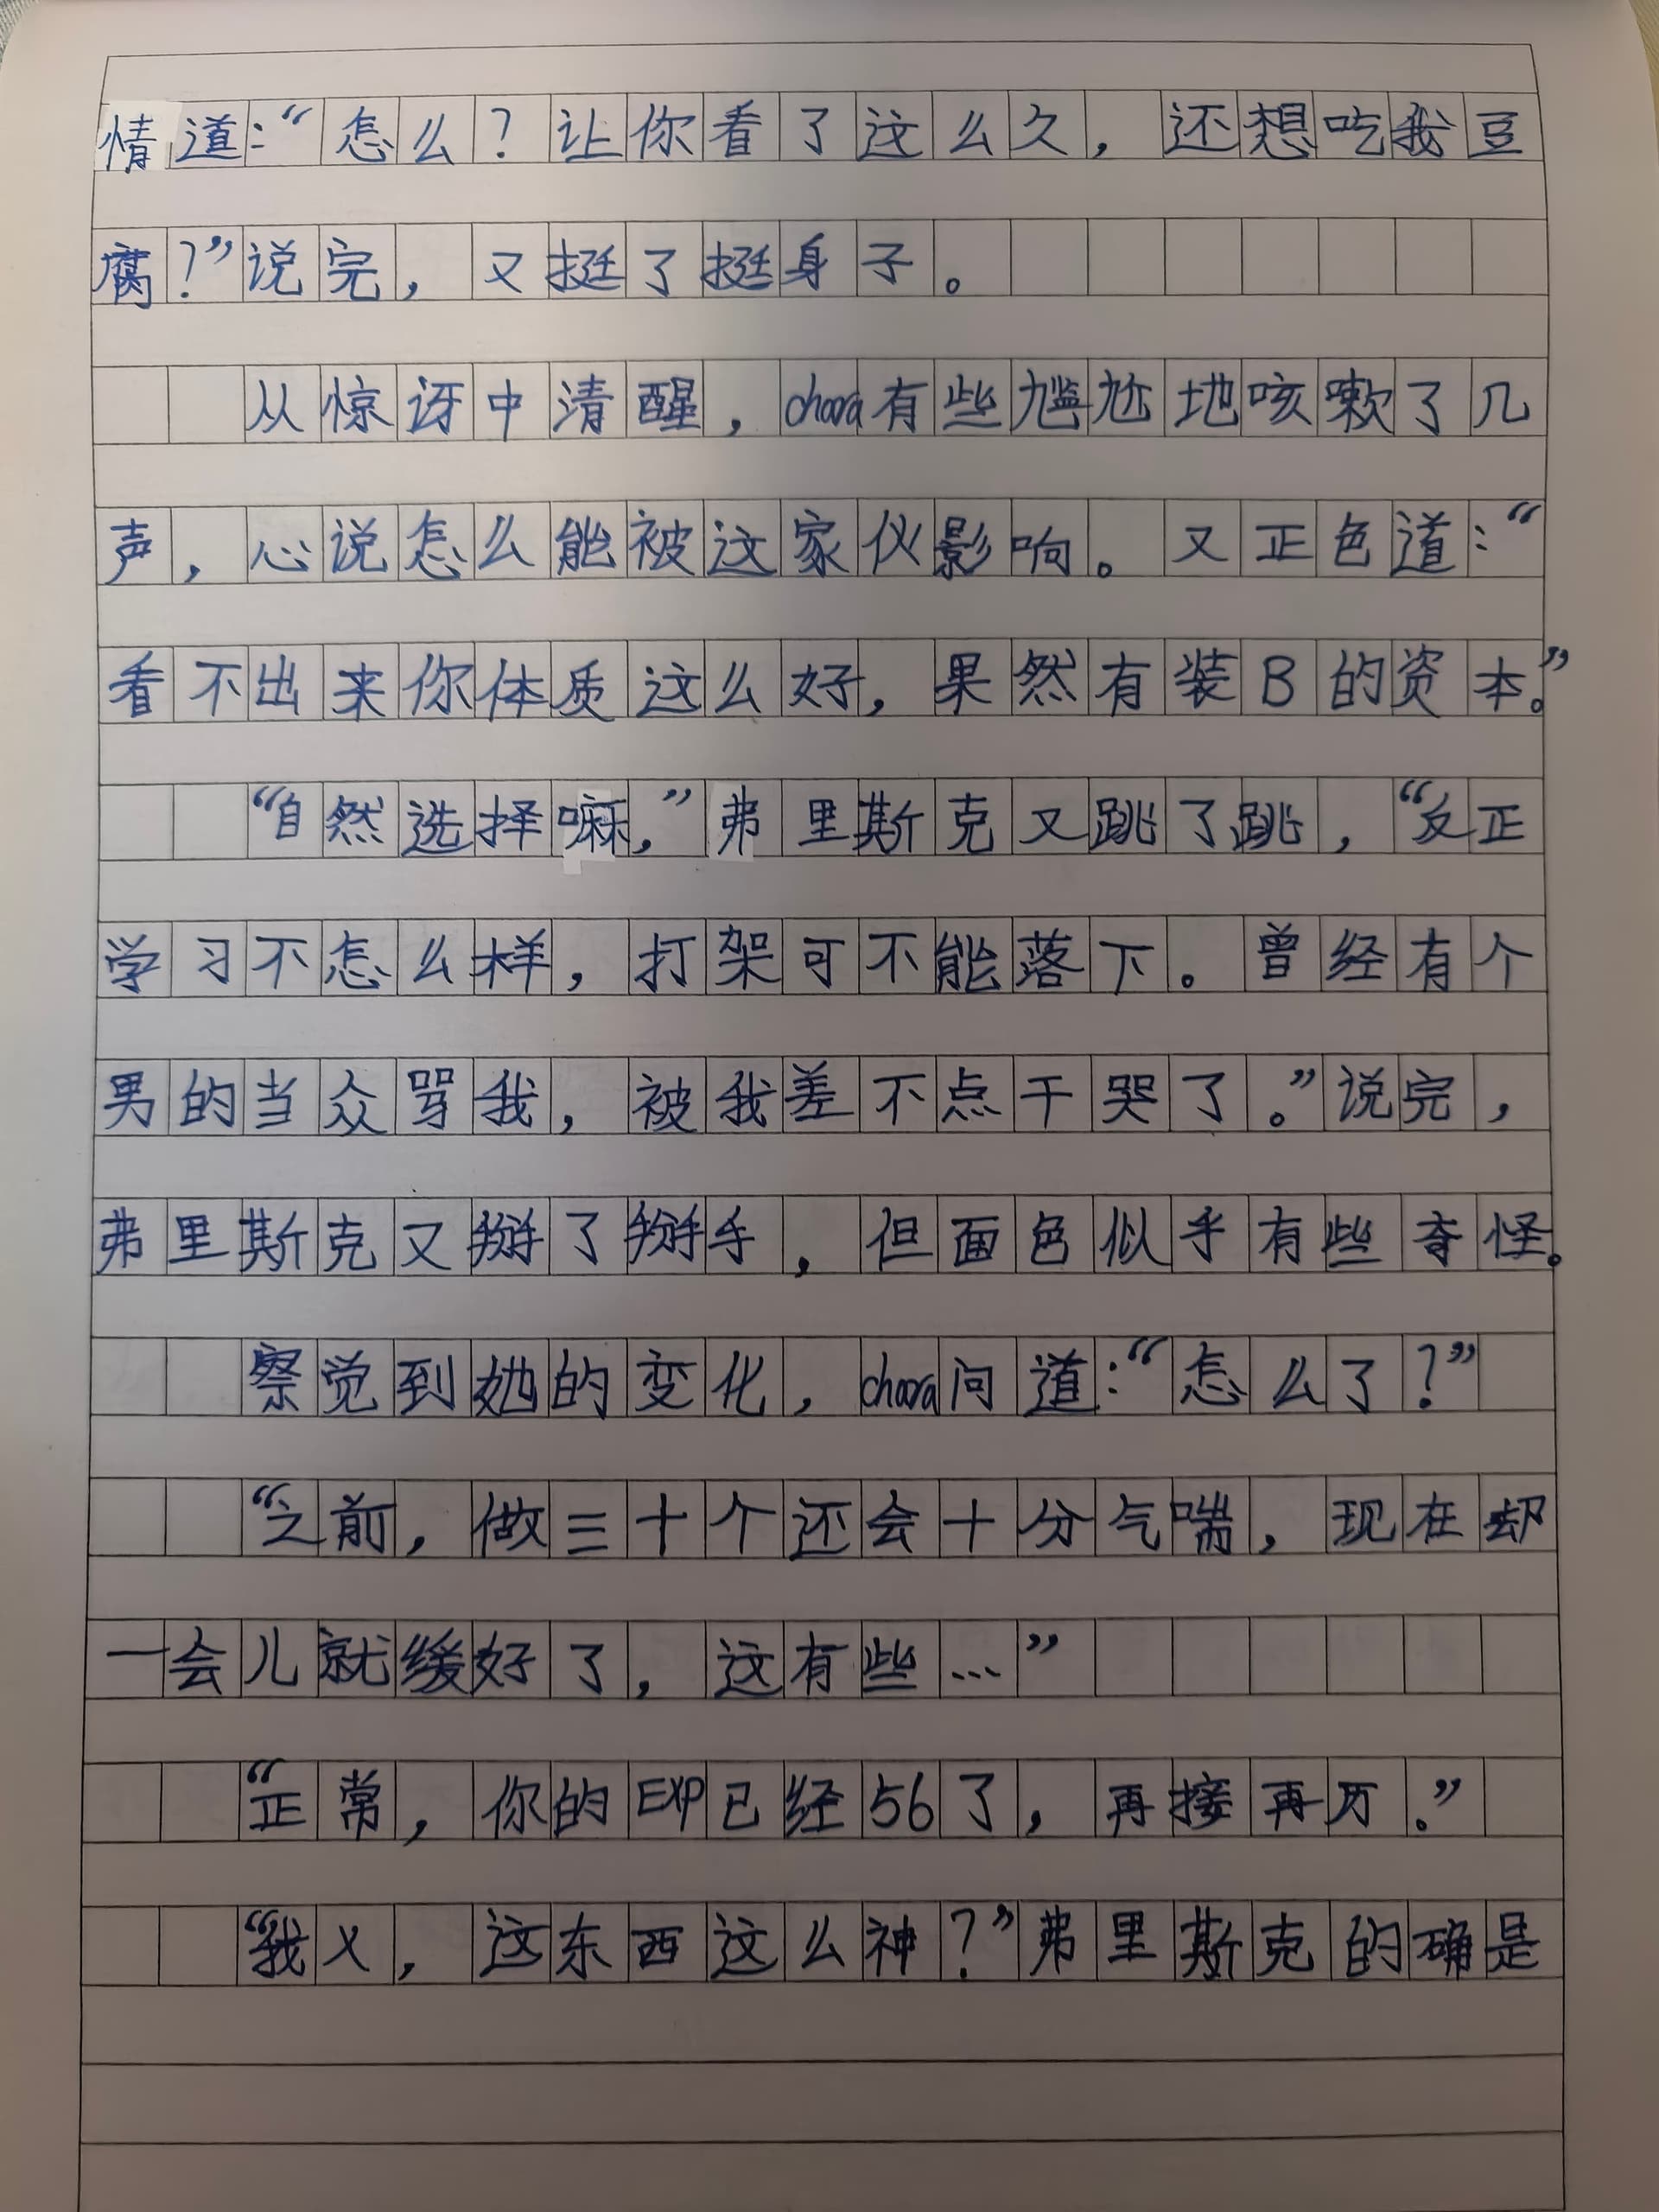 情道：“怎么？让你看了这么久，还想吃我豆
腐？”说完，又挺了挺身子。
从惊讶中清醒，chara有些尴尬地咳嗽了几
声，心说怎么能被这家伙影响。又正色道：“
看不出来你体质这么好，果然有装B的资本。”
“自然选择嘛，”弗里斯克又跳了跳，“反正
学习不怎么样，打架可不能落下。曾经有个
男的当众骂我，被我差不点干哭了。”说完，
弗里斯克又掰了掰手，但面色似乎有些奇怪。
察觉到她的变化，chara问道：“怎么了？”
“之前，做三十个还会十分气喘，现在却
一会儿就缓好了，这有些…”
“正常，你的EXP已经56了，再接再厉。”
“我X，这东西这么神？”弗里斯克的确是